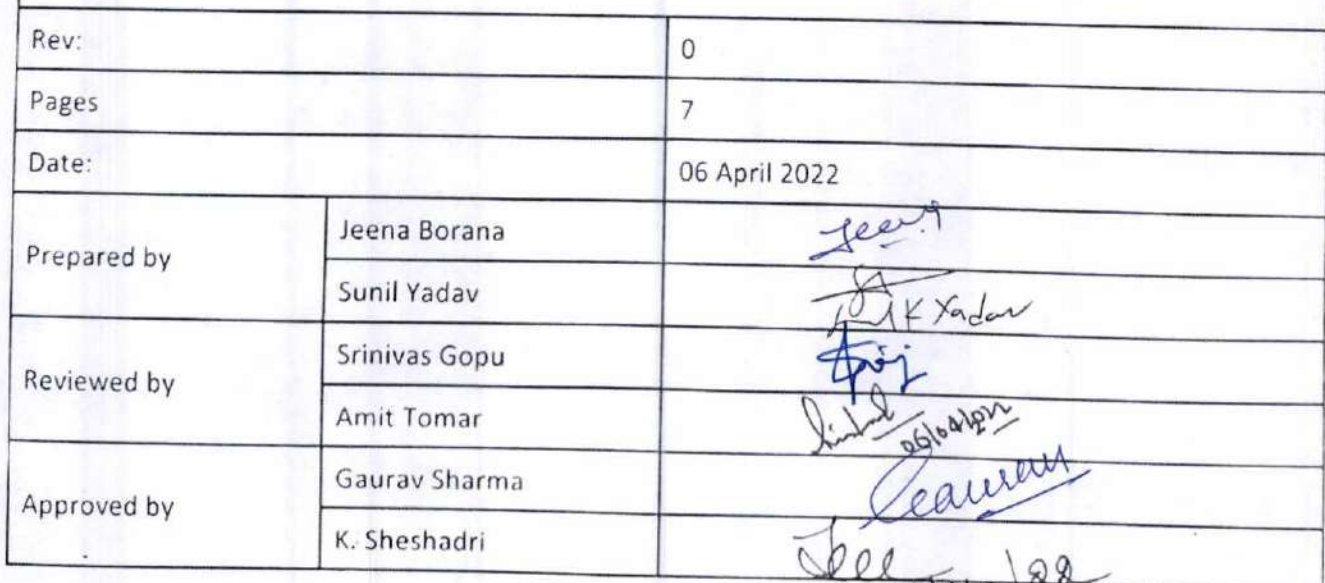 Rev: 0
Pages 7
Date: 06 April 2022
Prepared by
Jeena Borana
Sunil Yadav K Yadav
Reviewed by
Srinivas Gopu
Amit Tomar 06/04/2022
Approved by
Gaurav Sharma Gaurav
K. Sheshadri